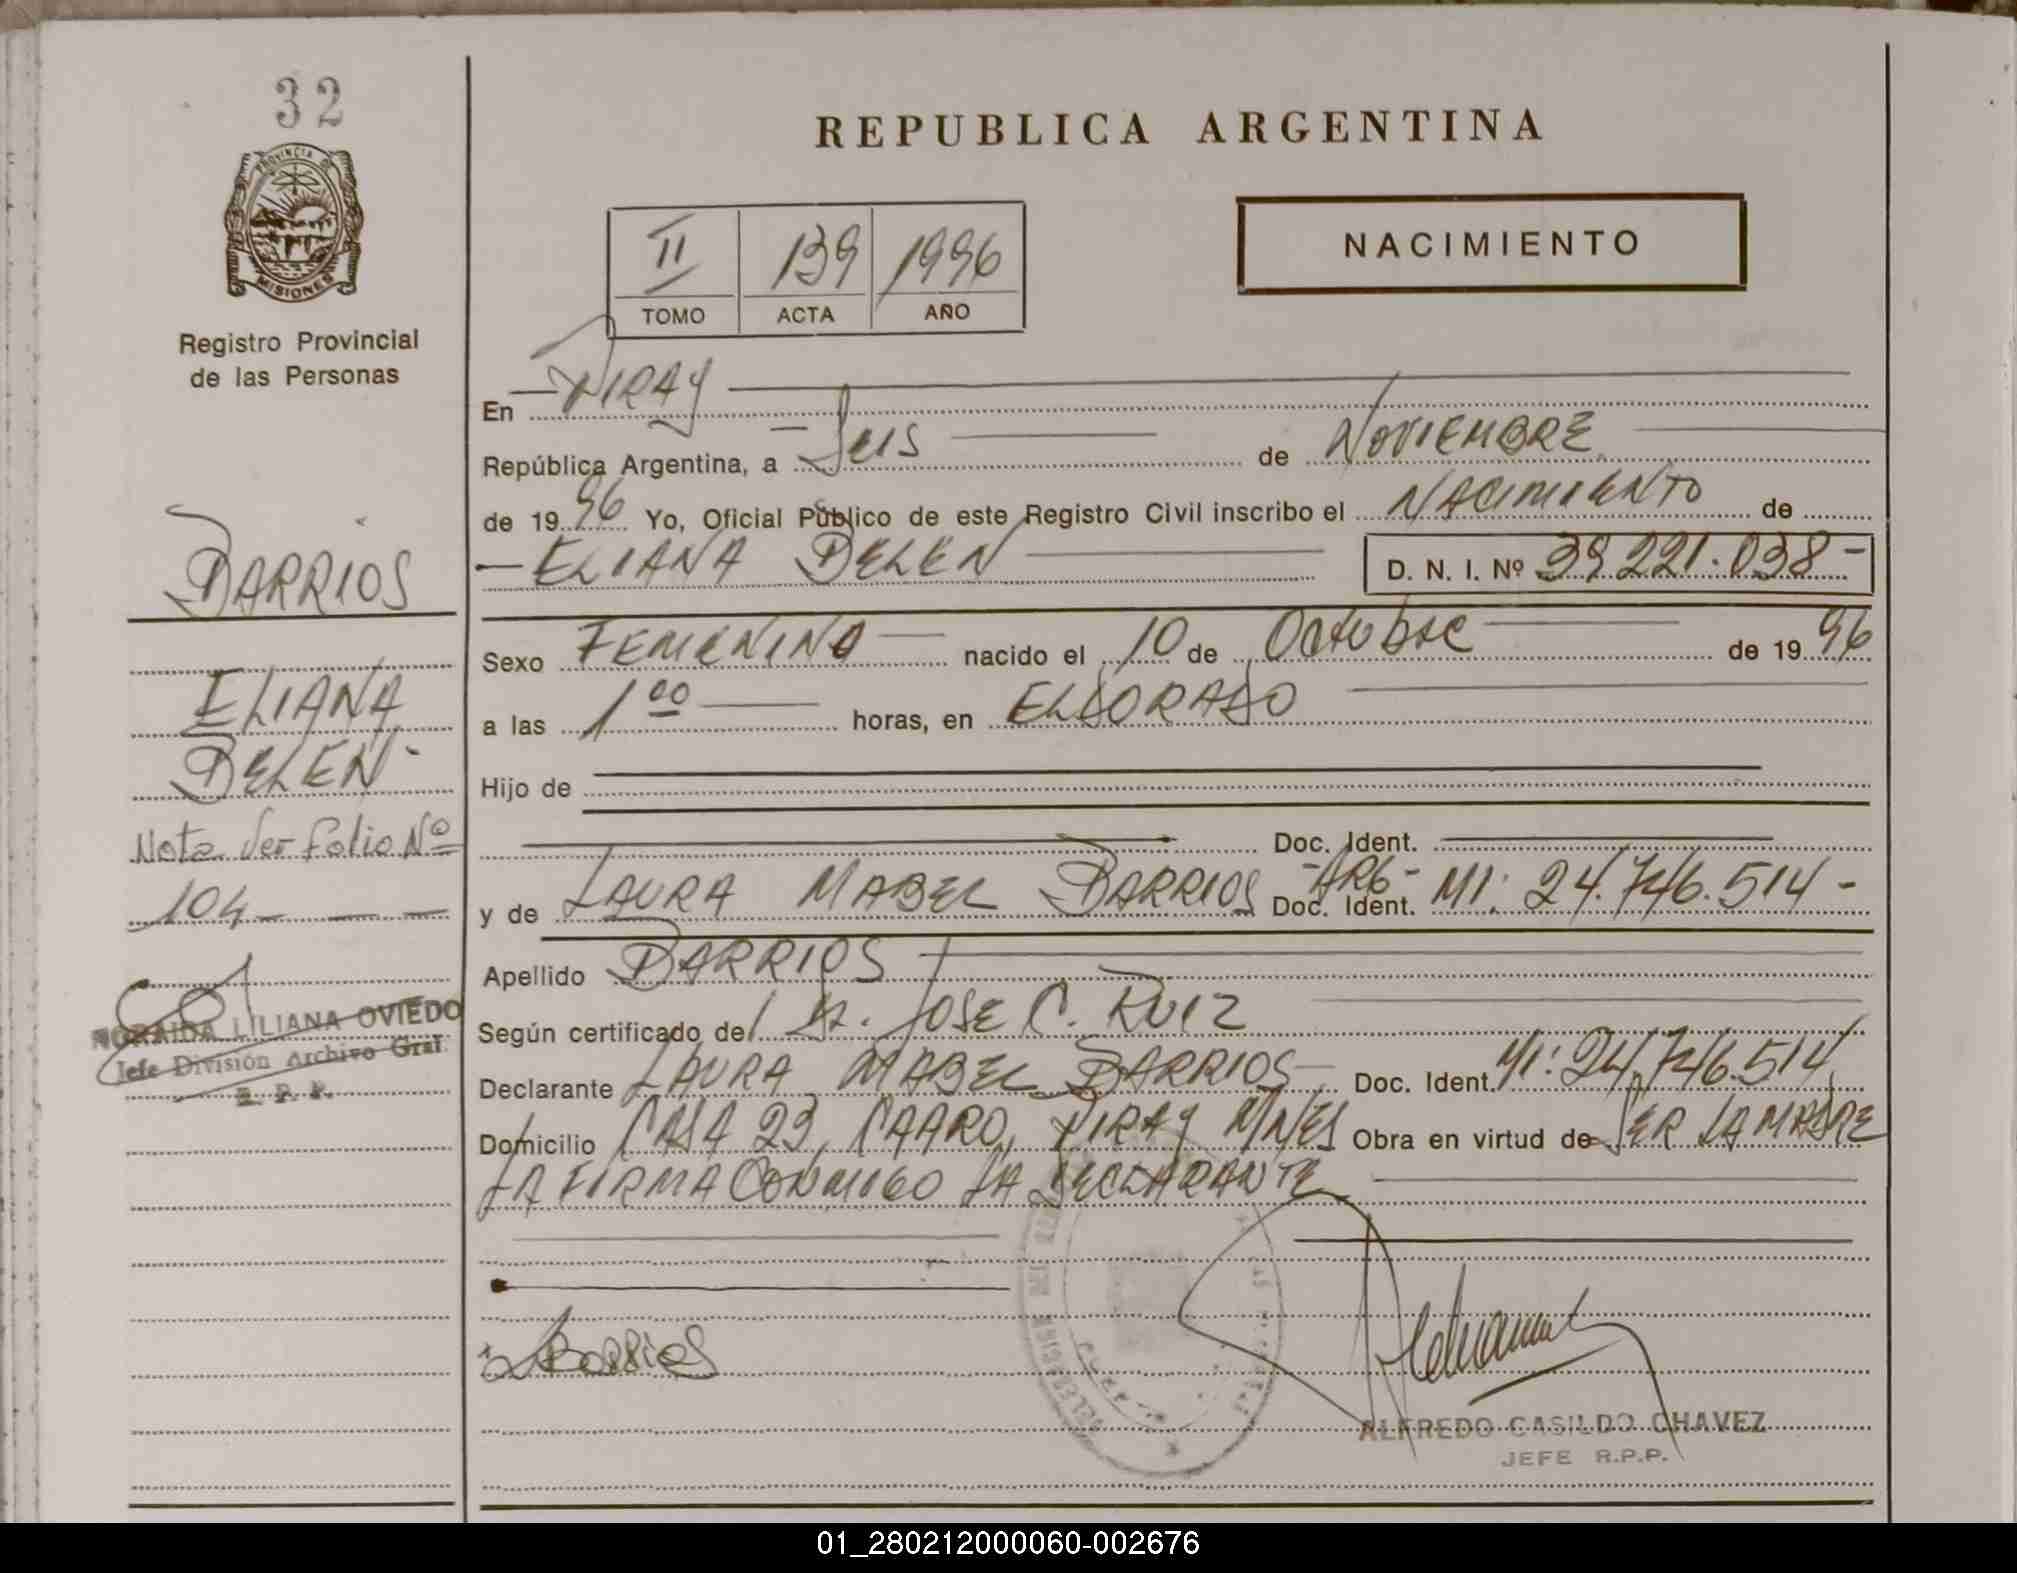 32
REPUBLICA ARGENTINA
PROVINCIA DE
MISIONES
Registro Provincial
de las Personas
II 139 1996
TOMO ACTA AÑO
NACIMIENTO
En PIRAY
República Argentina, a Seis de NOVIEMBRE
de 1996 Yo, Oficial Público de este Registro Civil inscribo el NACIMIENTO de
ELIANA BELEN D. N. I. Nº 39.221.038-
Sexo FEMENINO nacido el 10 de Octubre de 1996
a las 1 00 horas, en ELDORADO
Hijo de
Doc. Ident.
y de LAURA MABEL BARRIOS Doc. Ident. -ARG- MI: 24.746.514-
Apellido BARRIOS
Según certificado del Dr. JOSE C. RUIZ
Declarante LAURA MABEL BARRIOS Doc. Ident. MI: 24.746.514
Domicilio CASA 23, CAARO, PIRAY MNES Obra en virtud de SER LA MADRE
LA FIRMA CONMIGO LA DECLARANTE
Barrios
ALFREDO CASILDO CHAVEZ
JEFE R.P.P.
BARRIOS
ELIANA
BELEN-
Nota Ver folio Nº
104
NORAIDA LILIANA OVIEDO
Jefe División Archivo Gral.
R. P. P.
01_280212000060-002676